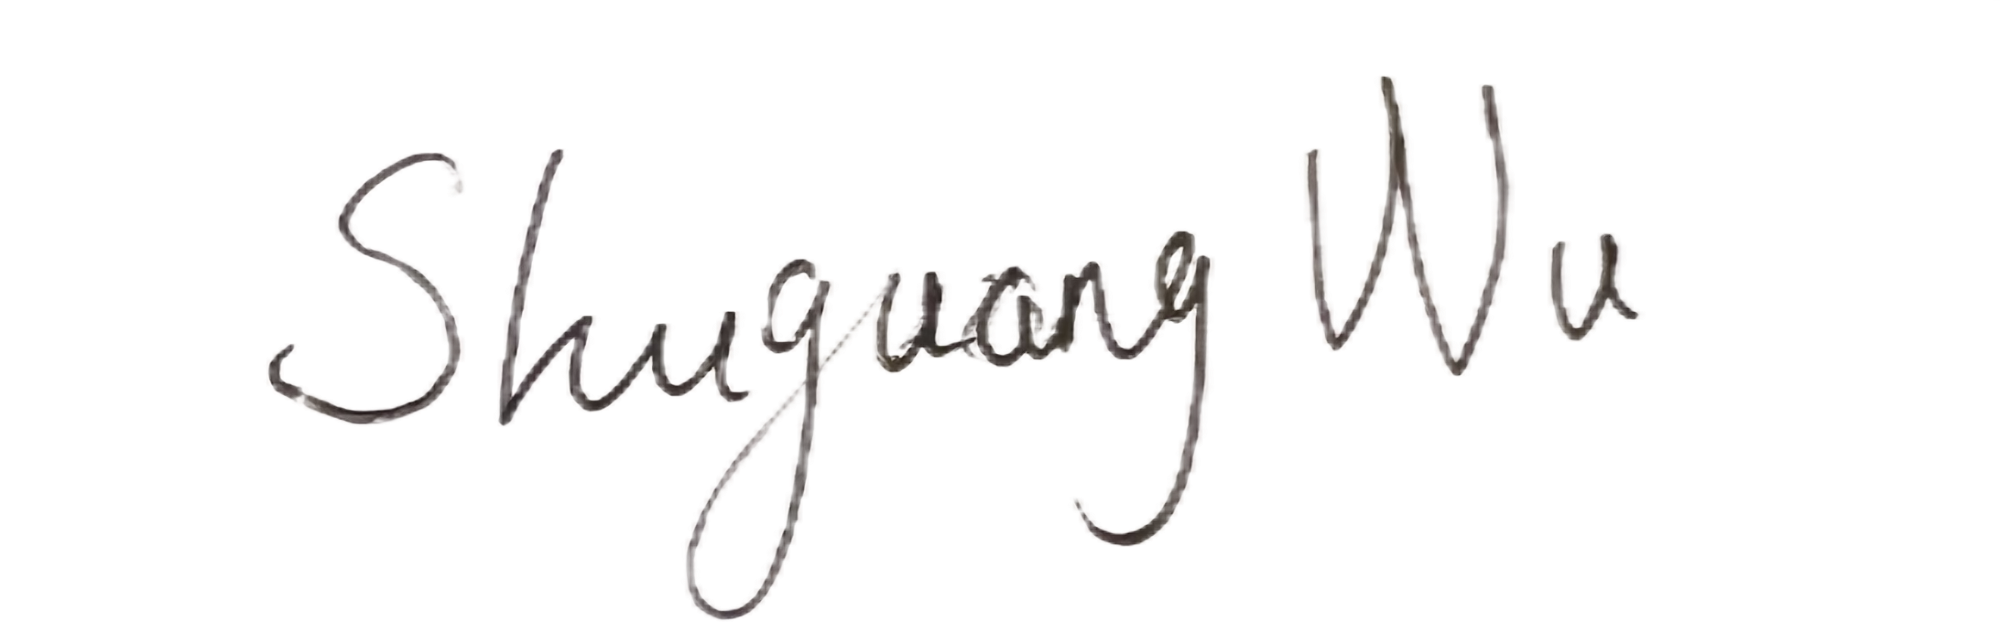 Shuguang Wu